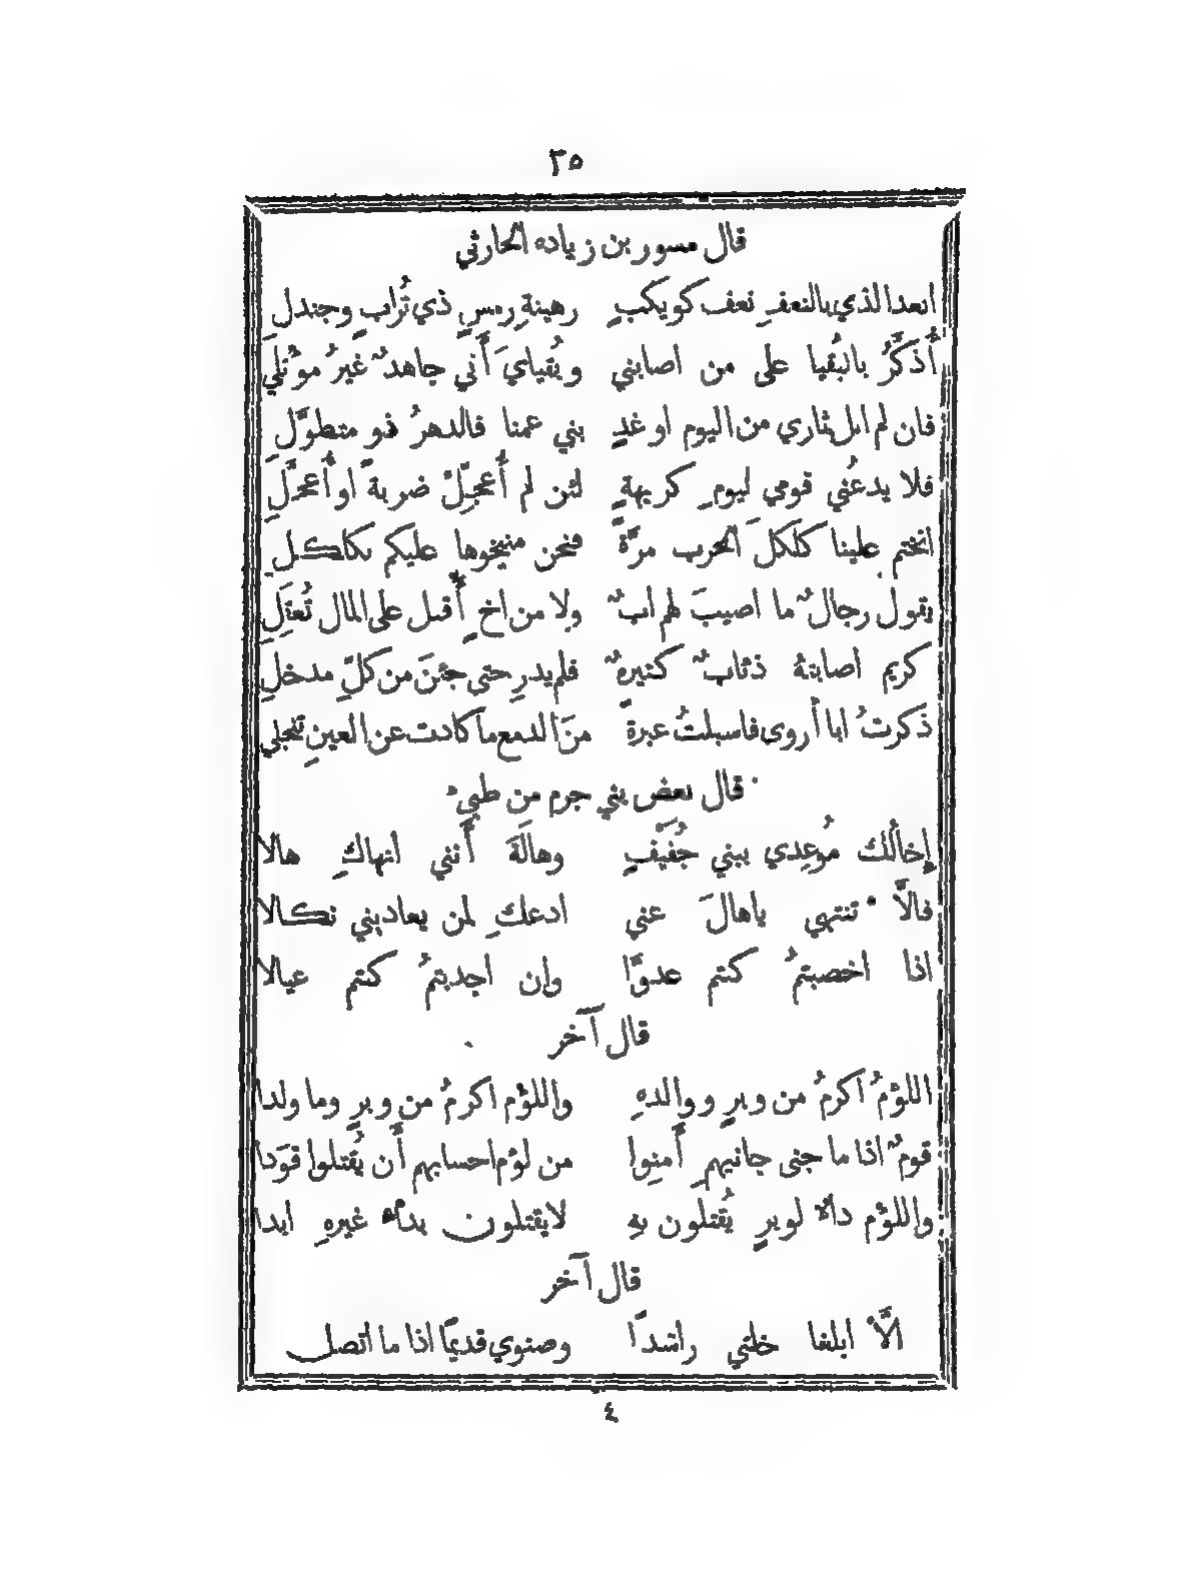 ٢٥
قال مسور بن زياده الحارثي
ابعد الذي بالنعفِ نعف كويكبٍ رهينةِ رمسٍ ذي تُرابٍ وجندلِ
أُذكَّرُ بالبُقيا على من اصابني وبُقيايَ أَني جاهدٌ غيرُ موْتلي
فان لم انل ثاري من اليوم او غدٍ بني عمنا فالدهرُ ذو متطوَّلِ
فلا يدعُني قومي ليومِ كريهةٍ لئن لم أُعجِّلْ ضربةً او أُعجَّلِ
انختم علينا كلكلَ الحرب مرَّةً فنحن منيخوها عليكم بكلكلِ
يقول رجالٌ ما اصيبَ لهم ابٌ ولا من اخٍ أَقبل على المال تُعقَلِ
كريم اصابتهُ ذئابٌ كثيرهٌ فلم يدرِ حتى جئنَ من كلِّ مدخلِ
ذكرتُ ابا أَروى فاسبلتُ عبرةً منَ الدمع ما كادت عن العينِ تنجلي
قال بعض بني جرم من طيءٍ
إِخالُك مُوعِدي ببني جُفَيْفٍ وهالَةَ أَنني انهاكِ هالا
فالاَّ تنتهي ياهالَ عني ادعكِ لمن يعاديني نكالا
اذا اخصبتمُ كنتم عدوًّا وان اجدبتمُ كنتم عيالا
قال آخر
اللؤمُ اكرمُ من وبرٍ ووالدهِ واللؤم اكرمُ من وبرٍ وما ولدا
قومٌ اذا ما جنى جانيهمِ أَمنِوا من لؤم احسابهم أَن يُقتلوا قوَدا
واللؤم دآءٌ لوبرٍ يُقتلون بهِ لا يقتلون بدآءٍ غيرهِ ابدا
قال آخر
الاَّ ابلغا خلتي راشداً وصنوي قديماً اذا ما اتصل
٤